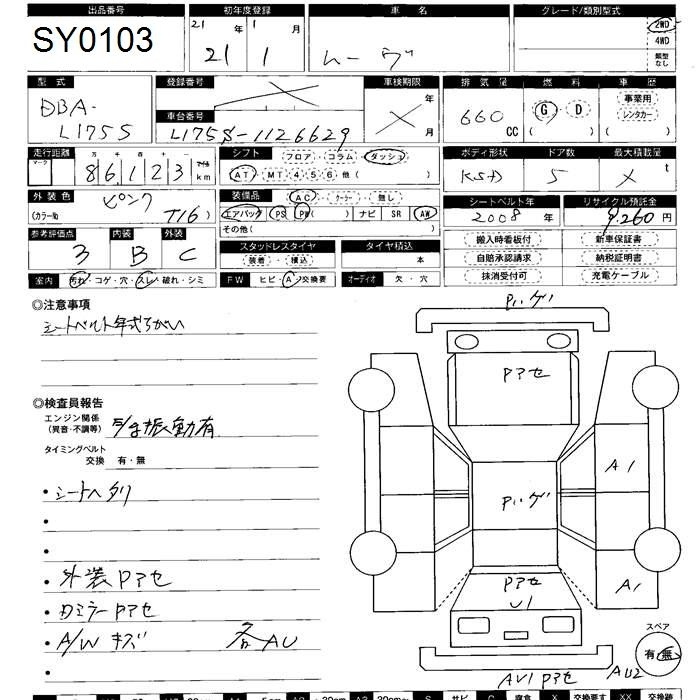 出品番号 初年度登録 車名 グレード/類別型式
SY0103 21年 1月 2WD
21 1 ムーヴ 4WD
類型なし
型式 登録番号 車検期限 排気量 燃料 車歴
DBA- 年 660 CC G・D 事業用
車台番号 レンタカー
L175S L175S-1126629 月 ( ) ( )
走行距離 シフト フロア・コラム・ダッシュ ボディ形状 ドア数 最大積載量
マーク 万 千 百 十 マイル
86,123 km AT・MT 4・5・6 他( ) 5 X t
外装色 ピンク 装備品 AC・クーラー・無し シートベルト年 リサイクル預託金
(カラーNo T16) エアバッグ( ) PS PW ナビ SR AW 2008年 9,260円
その他( )
参考評価点 内装 外装 スタッドレスタイヤ タイヤ積込 搬入時看板付 新車保証書
3 B C 装着・積込 本 自賠承認請求 納税証明書
室内 汚れ・コゲ・穴・スレ・破れ・シミ FW ヒビ・A・交換要 オーディオ 欠・穴 抹消受付可 充電ケーブル
◎注意事項
シートベルト年式ちがい
◎検査員報告
エンジン関係
(異音・不調等) 振動有
タイミングベルト
交換 有・無
・シートヘタリ
・
・
・外装Pアセ
・Dミラー Pアセ
・A/W キズ 各AU
・
Pいゲ
Pアセ
Pいゲ
A1
A1
Pアセ
U1
AU1 Pアセ
AU2
スペア
有・無